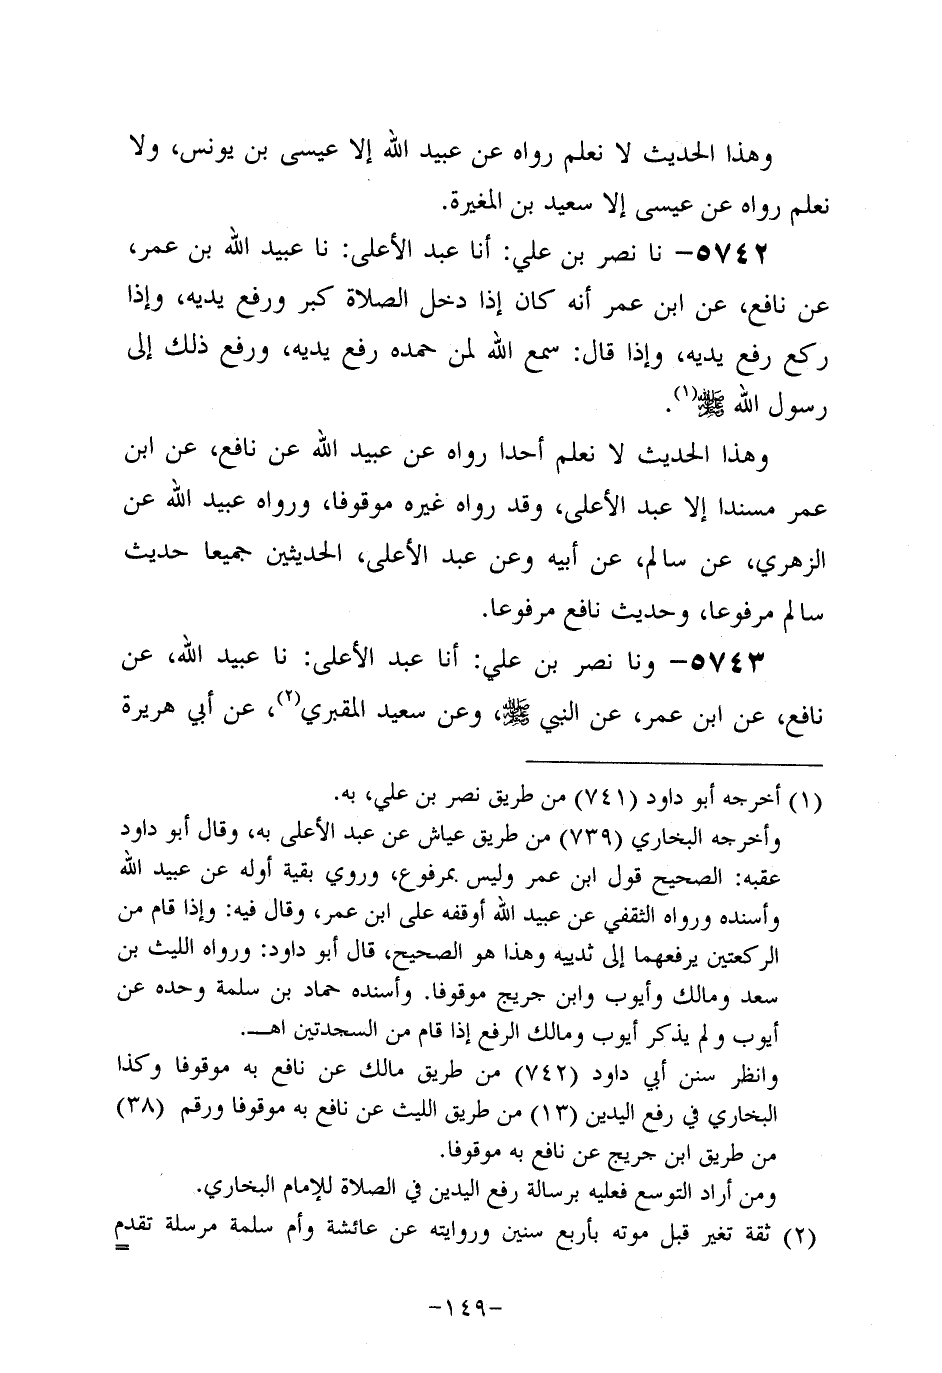 وهذا الحديث لا نعلم رواه عن عبيد الله إلا عيسى بن يونس، ولا
نعلم رواه عن عيسى إلا سعيد بن المغيرة.
٥٧٤٢– نا نصر بن علي: أنا عبد الأعلى: نا عبيد الله بن عمر،
عن نافع، عن ابن عمر أنه كان إذا دخل الصلاة كبر ورفع يديه، وإذا
ركع رفع يديه، وإذا قال: سمع الله لمن حمده رفع يديه، ورفع ذلك إلى
رسول الله ﷺ(١).
وهذا الحديث لا نعلم أحدا رواه عن عبيد الله عن نافع، عن ابن
عمر مسندا إلا عبد الأعلى، وقد رواه غيره موقوفا، ورواه عبيد الله عن
الزهري، عن سالم، عن أبيه وعن عبد الأعلى، الحديثين جميعا حديث
سالم مرفوعا، وحديث نافع مرفوعا.
٥٧٤٣– ونا نصر بن علي: أنا عبد الأعلى: نا عبيد الله، عن
نافع، عن ابن عمر، عن النبي ﷺ، وعن سعيد المقبري(٢)، عن أبي هريرة
(١) أخرجه أبو داود (٧٤١) من طريق نصر بن علي، به.
وأخرجه البخاري (٧٣٩) من طريق عياش عن عبد الأعلى به، وقال أبو داود
عقبه: الصحيح قول ابن عمر وليس بمرفوع، وروي بقية أوله عن عبيد الله
وأسنده ورواه الثقفي عن عبيد الله أوقفه على ابن عمر، وقال فيه: وإذا قام من
الركعتين يرفعهما إلى ثدييه وهذا هو الصحيح، قال أبو داود: ورواه الليث بن
سعد ومالك وأيوب وابن جريج موقوفا. وأسنده حماد بن سلمة وحده عن
أيوب ولم يذكر أيوب ومالك الرفع إذا قام من السجدتين اهـ.
وانظر سنن أبي داود (٧٤٢) من طريق مالك عن نافع به موقوفا وكذا
البخاري في رفع اليدين (١٣) من طريق الليث عن نافع به موقوفا ورقم (٣٨)
من طريق ابن جريج عن نافع به موقوفا.
ومن أراد التوسع فعليه برسالة رفع اليدين في الصلاة للإمام البخاري.
(٢) ثقة تغير قبل موته بأربع سنين وروايته عن عائشة وأم سلمة مرسلة تقدم =
–١٤٩–